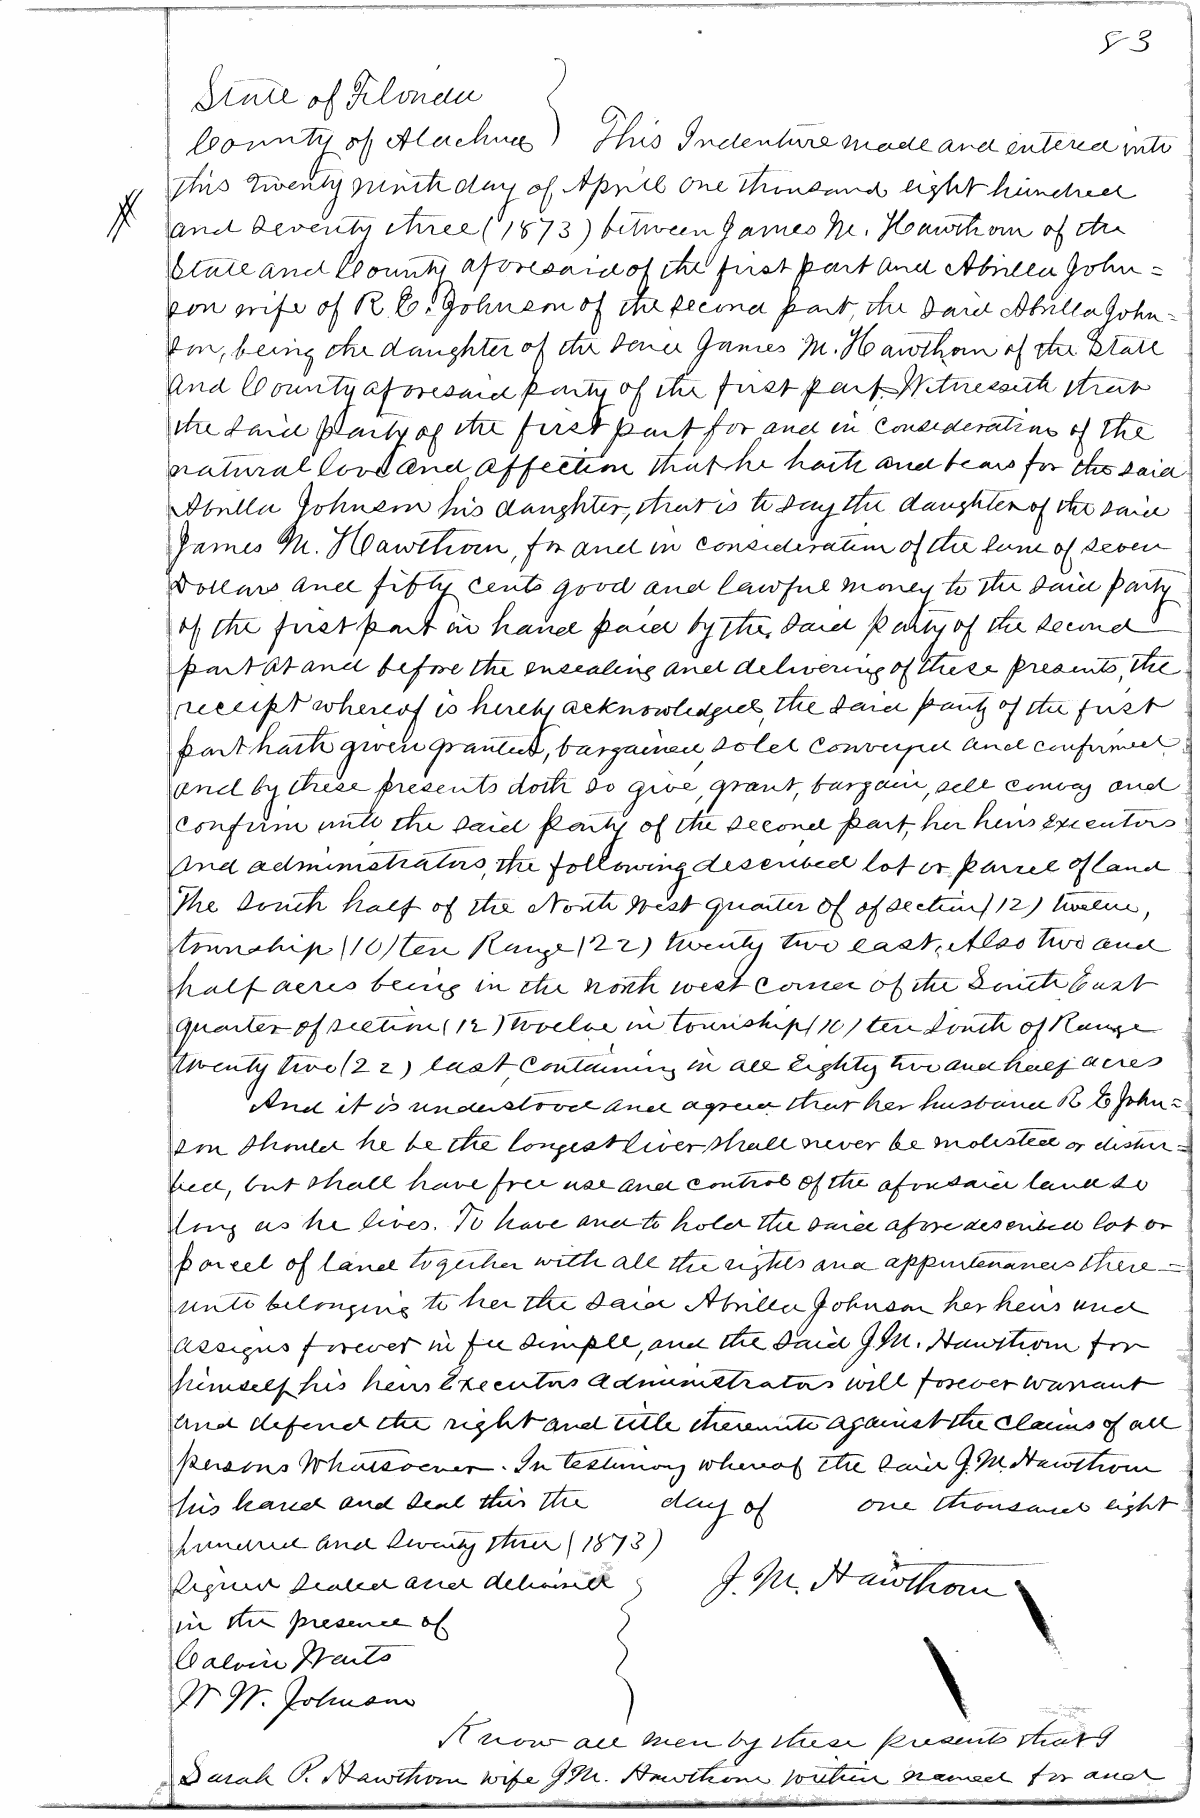 83
State of Florida
County of Alachua } This Indenture made and entered into
this twenty ninth day of April one thousand eight hundred
and seventy three (1873) between James M. Hawthorn of the
State and County aforesaid of the first part and Abrilla John=
son wife of R. E. Johnson of the second part, the said Abrilla John=
son, being the daughter of the said James M. Hawthorn of the State
and County aforesaid party of the first part, Witnesseth that
the said party of the first part for and in consideration of the
natural love and affection that he hath and bears for the said
Abrilla Johnson his daughter, that is to say the daughter of the said
James M. Hawthorn, for and in consideration of the sum of seven
Dollars and fifty cents good and lawful money to the said party
of the first part in hand paid by the said party of the second
part at and before the ensealing and delivering of these presents, the
receipt whereof is hereby acknowledged, the said party of the first
part hath given granted, bargained, sold conveyed and confirmed
and by these presents doth so give, grant, bargain, sell convey and
confirm unto the said party of the second part, her heirs Executors
and administrators, the following described lot or parcel of land
The South half of the North West quarter of of section (12) twelve,
township (10) ten Range (22) twenty two east, Also two and
half acres being in the north west corner of the South East
quarter of section (12) twelve in township (10) ten South of Range
twenty two (22) east, containing in all Eighty two and half acres
And it is understood and agreed that her husband R E John=
son should he be the longest liver shall never be molisted or distur=
bed, but shall have free use and control of the aforesaid land so
long as he lives. To have and to hold the said afore described lot or
parcel of land together with all the rights and appurtenances there=
unto belonging to her the said Abrilla Johnson her heirs and
assigns forever in fee simple, and the said J. M. Hawthorn for
himself his heirs Executors administrators will forever warrant
and defend the right and title thereunto against the claims of all
persons Whatsoever. In testimony whereof the said J. M. Hawthorn
his hand and seal this the day of one thousand eight
hundred and seventy three (1873)
Signed sealed and delivered } J. M. Hawthorn
in the presence of
Calvin Waits
W W. Johnson
Know all men by these presents that I
Sarah P. Hawthorn wife J. M. Hawthorn within named for and